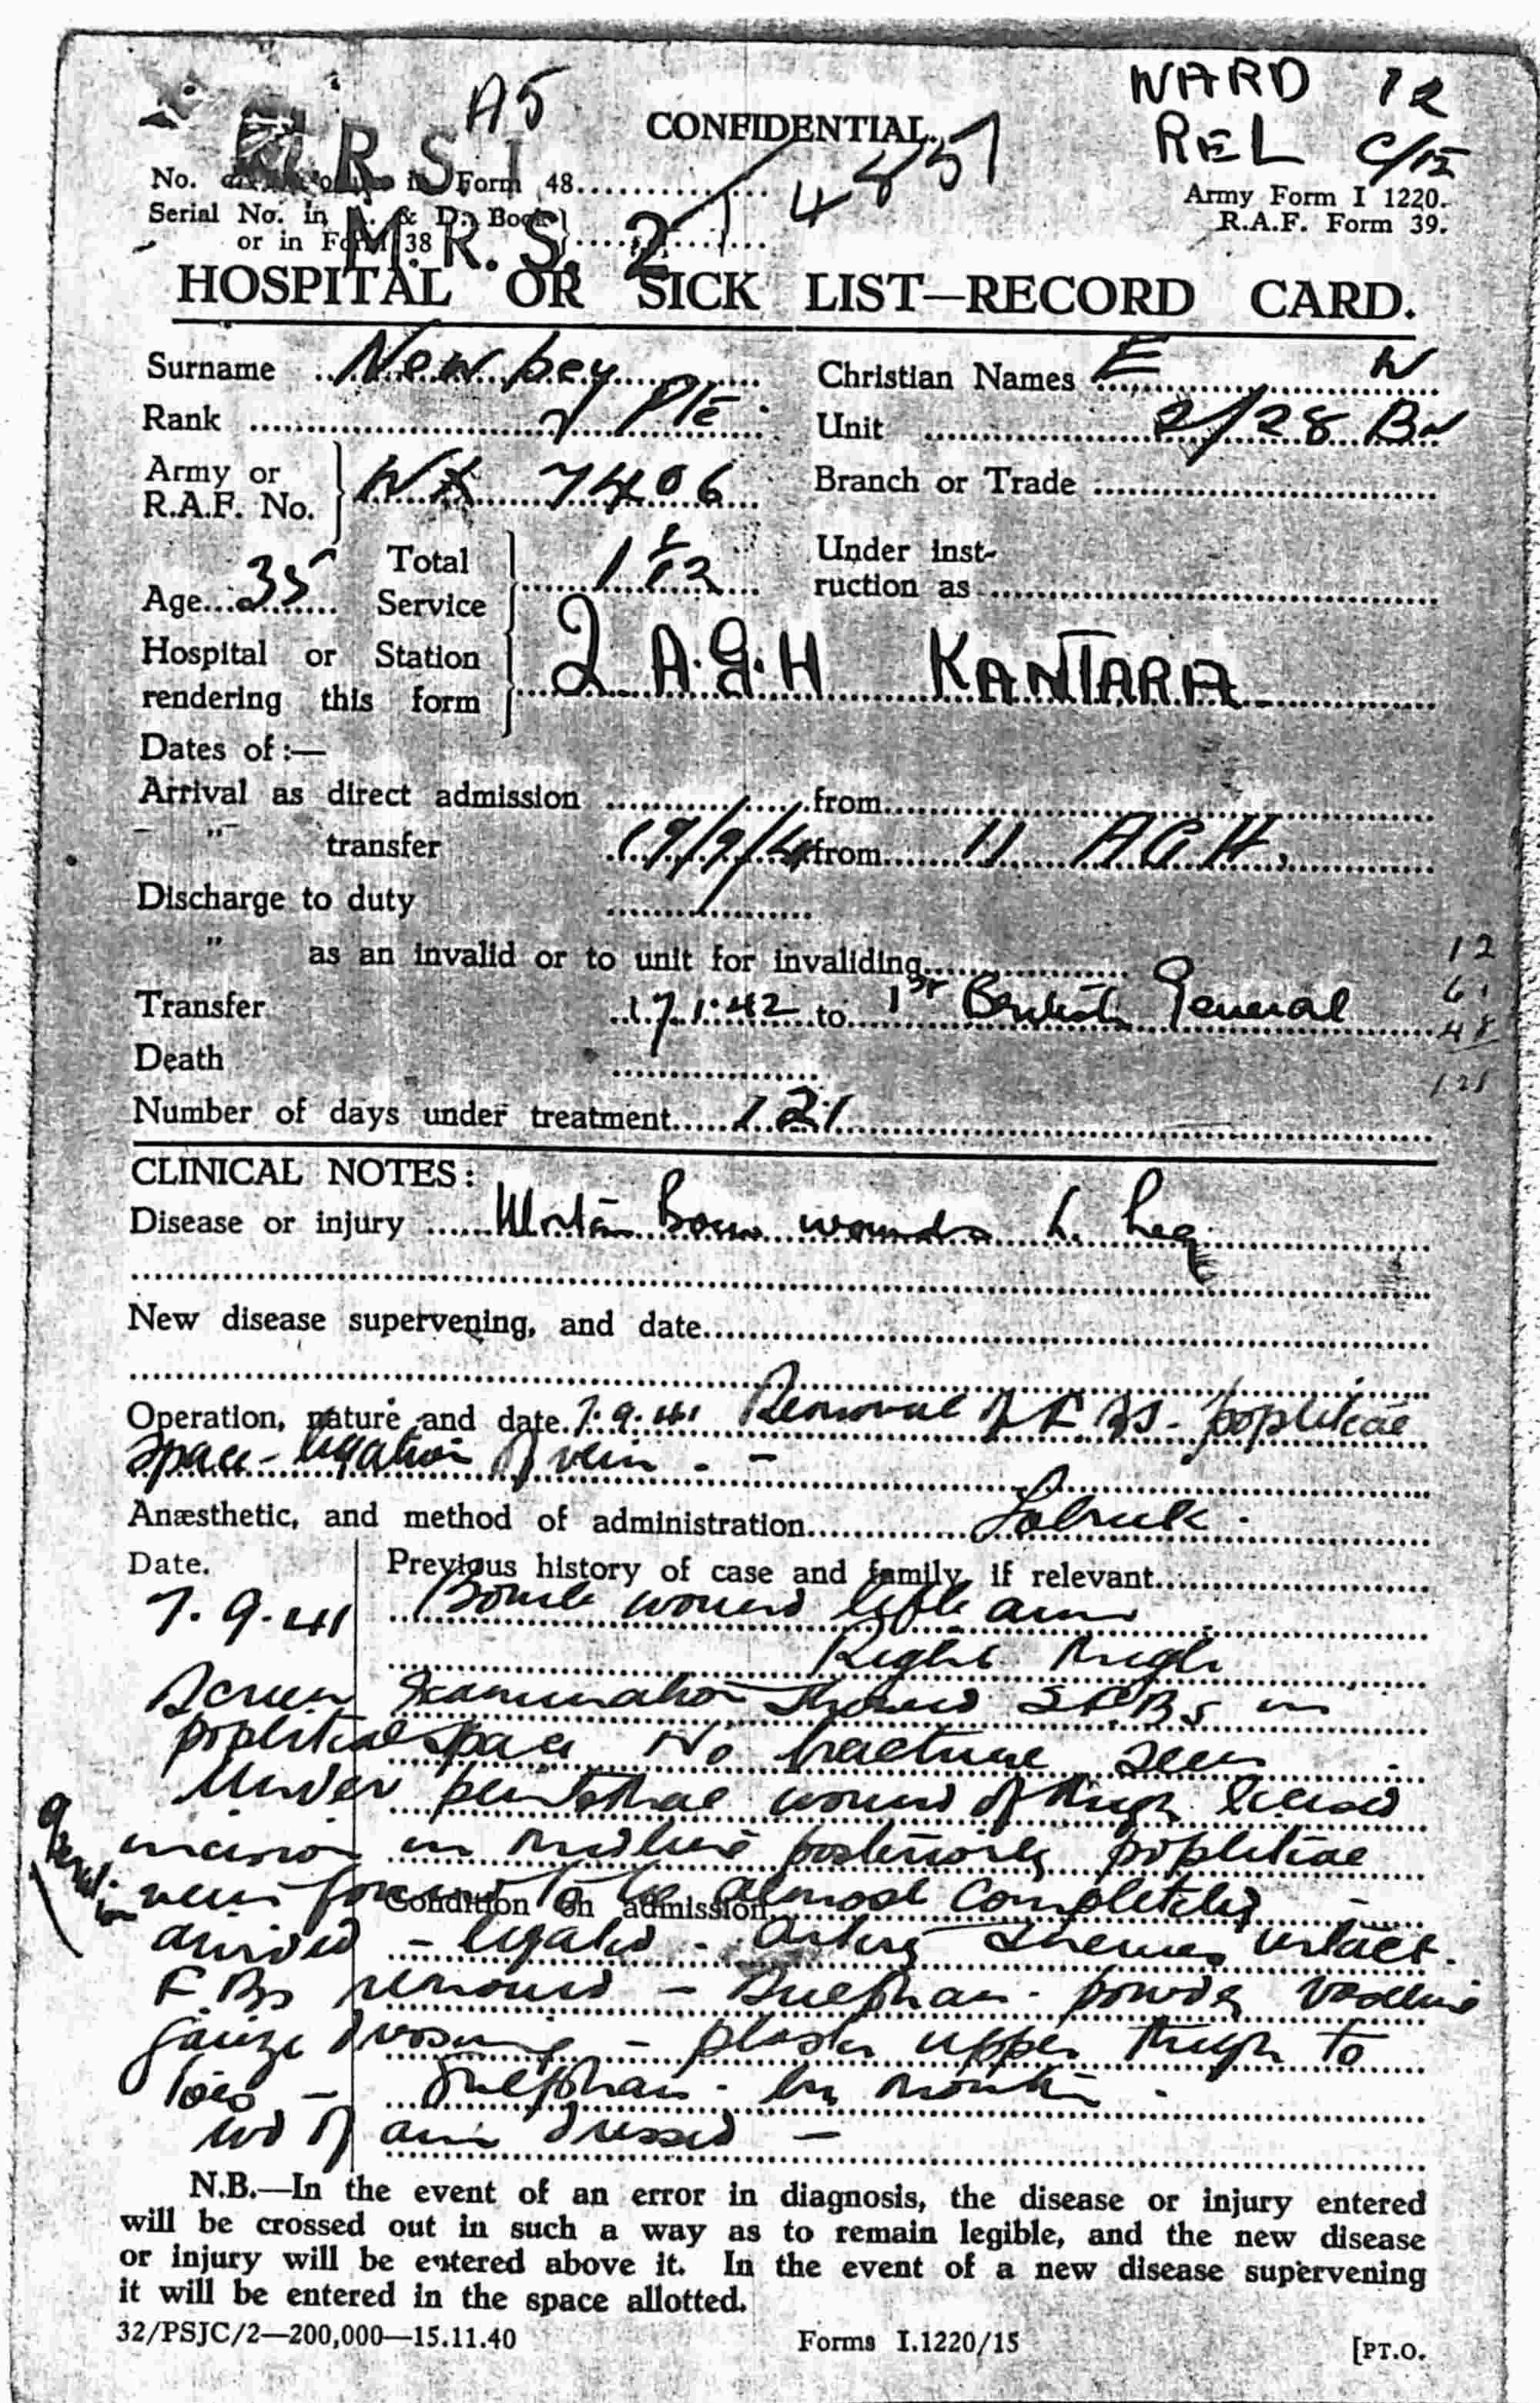 A5
WARD 12
CONFIDENTIAL.
R S 1
REL C/15
4857
No. Form 48
Army Form I 1220.
Serial No. in A. & D. Book
R.A.F. Form 39.
or in Form 38
M.R.S. 2
HOSPITAL OR SICK LIST—RECORD CARD.
Surname Newbey Christian Names E W
Rank Pte Unit 2/28 Bn
Army or R.A.F. No. WX 7406 Branch or Trade
Age 35 Total Service 1 Under instruction as
Hospital or Station rendering this form 2 A.G.H KANTARA
Dates of :—
Arrival as direct admission from
" transfer 19/9/41 from 11 A G H.
Discharge to duty
" as an invalid or to unit for invaliding
12
Transfer 17.1.42 to 1st British General
61
48
Death
121
Number of days under treatment 121
CLINICAL NOTES:
Disease or injury wounds L. Leg
New disease supervening, and date
Operation, nature and date 7.9.41 Removal of F.Bs - popliteal
space - ligation of vein . -
Anæsthetic, and method of administration Tobruk.
Date. Previous history of case and family, if relevant
7.9.41 Bomb wound left arm
Right thigh
Screen Examination showed 2 F.Bs in
popliteal space No fracture seen
Under pentothal wound of thigh excised
Operation
incision in midline posteriorly popliteal
vein found to be almost completely
Condition on admission
divided - ligated - Artery & nerves intact.
F.Bs removed - Sulphan. powder vaseline
gauze dressing - plaster upper thigh to
toes - Sulphan. by mouth.
wd of arm dressed -
N.B.—In the event of an error in diagnosis, the disease or injury entered
will be crossed out in such a way as to remain legible, and the new disease
or injury will be entered above it. In the event of a new disease supervening
it will be entered in the space allotted.
32/PSJC/2—200,000—15.11.40 Forms I.1220/15 [PT.O.